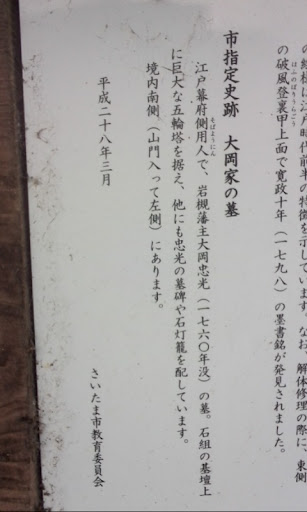 の総様は江戸時代前半の特徴を示しています。なお、解体修理の際に、東側
の破風登裏甲上面で寛政十年（一七九八）の墨書銘が発見されました。
はふのぼりうらごう
市指定史跡　大岡家の墓
そばようにん
江戸幕府側用人で、岩槻藩主大岡忠光（一七六〇年没）の墓。石組の基壇上
に巨大な五輪塔を据え、他にも忠光の墓碑や石灯籠を配しています。
境内南側（山門入って左側）にあります。
平成二十八年三月
さいたま市教育委員会